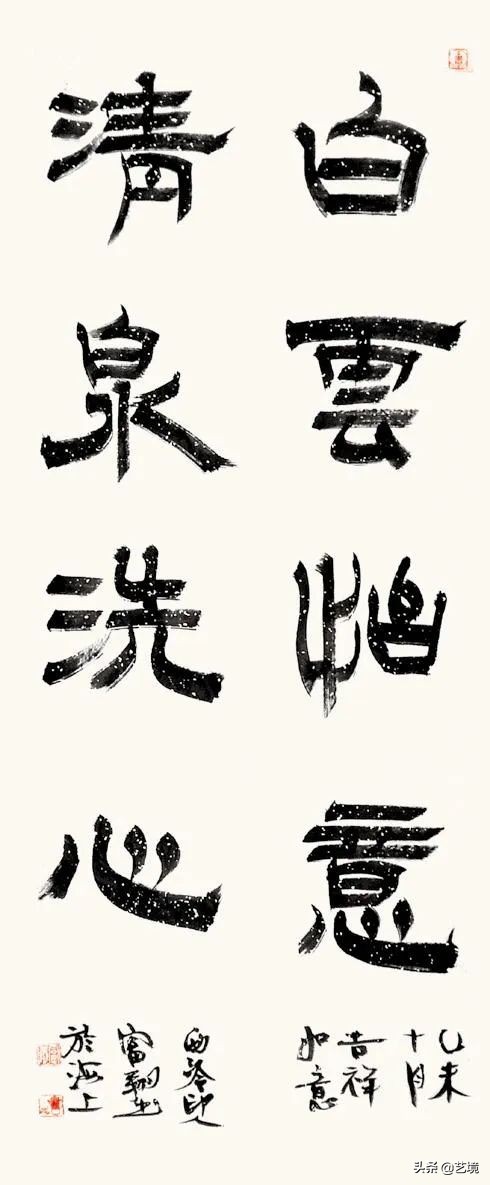 白雲怡意
清泉洗心
乙未
十月
吉祥
如意
西泠印
於海上
头条 @艺境